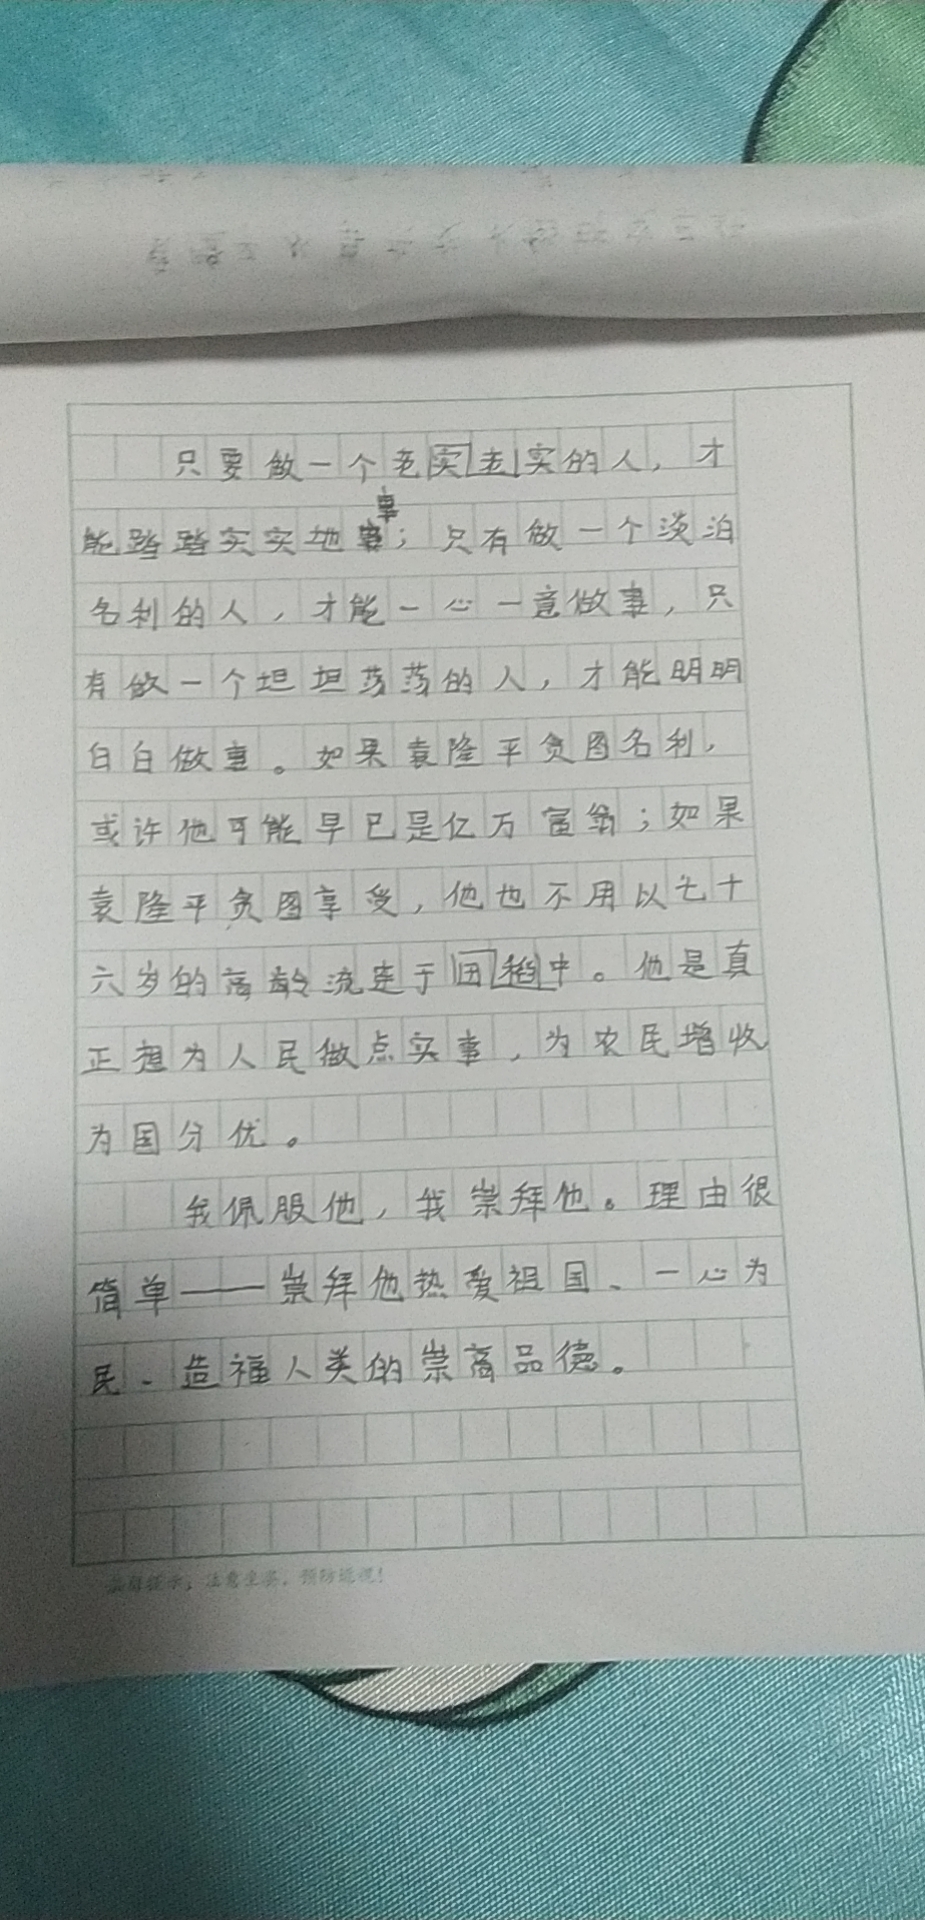 只要做一个老实老实的人，才
能踏踏实实地事；只有做一个淡泊
名利的人，才能一心一意做事，只
有做一个坦坦荡荡的人，才能明明
白白做事。如果袁隆平贪图名利，
或许他可能早已是亿万富翁；如果
袁隆平贪图享受，他也不用以七十
六岁的高龄流连于田稻中。他是真
正想为人民做点实事，为农民增收
为国分优。
我佩服他，我崇拜他。理由很
简单——崇拜他热爱祖国、一心为
民、造福人类的崇高品德。
注意坐姿，预防近视！